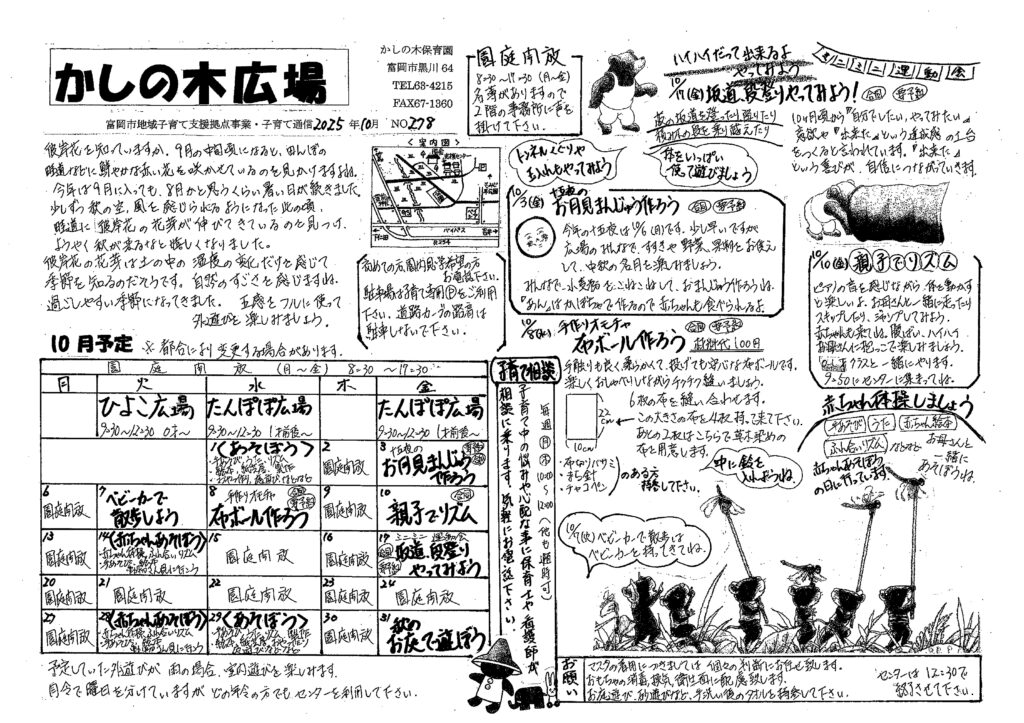 かしの木広場
かしの木保育園
富岡市黒川64
TEL63-4215
FAX67-1360
富岡市地域子育て支援拠点事業・子育て通信2025年10月 NO278
彼岸花を知っていますか。9月の中旬頃になると、田んぼの
畦道などに鮮やかな赤い花を咲かせているのを見かけますね。
今年は9月に入っても、8月かと思うくらい暑い日が続きました。
少しずつ秋の空、風を感じられるようになった此の頃、
畦道に彼岸花の花芽が伸びてきているのを見つけ、
ようやく秋が来るなと嬉しくなりました。
彼岸花の花芽は土の中の温度の変化だけを感じて
季節を知るのだそうです。自然のすごさを感じますね。
過ごしやすい季節になってきました。五感をフルに使って
外遊びを楽しみましょう。
園庭開放
8:30~17:30(月~金)
名簿がありますので
2階の事務所に声を
掛けて下さい。
<案内図>
バイパス
R254
初めての方、園内見学希望の方
お電話下さい。
駐車場は子育て専用Ⓟをご利用
下さい。道路カーブの路肩は
駐車しないで下さい。
ハイハイだって出来るよ
やってみよう
10/17(金)坂道、段登りやってみよう!
会場 要予約
トンネルくぐりや
玉入れもやってみよう
体をいっぱい
使って遊びましょう
ミニミニ運動会
10ヶ月頃から『自分でしたい。やってみたい』
意欲や『出来た』という達成感の土台
をつくると言われています。『出来た』
という喜びが、自信につながっていきます。
10/3(金)十五夜の
お月見まんじゅう作ろう
会場 要予約
今年の十五夜は10/6(月)です。少し早いですが
広場のみんなで、すすきや野菜、果物をお供え
して、中秋の名月を楽しみましょう。
みんなで、小麦粉をこねこねして、おまんじゅう作ろうね。
『あん』はかぼちゃで作るので赤ちゃんも食べられるよ。
10/8(水)手作りオモチャ
布ボール作ろう
会場 要予約
材料代100円
手触りも良く柔らかくて、投げても安心な布ボールです。
楽しくおしゃべりしながらチクチク縫いましょう。
6枚の布を縫い合わせます。
22cm
10cm
この大きさの布を4枚持って来て下さい。
あとの2枚はこちらで草木染めの
布を用意します。
・布切りバサミ
・まち針
・チャコペン
のある方
持参して下さい。
中に鈴を
入れようね。
10/10(金)親子でリズム
ピアノの音を感じながら体を動かす
と楽しいよ。お母さんと一緒に走ったり
スキップしたり、ジャンプしてみよう。
赤ちゃんも来てね。腹ばい、ハイハイ
お母さんに抱っこで楽しみましょう。
クラスと一緒にやります。
9:50にセンターに集まってね。
赤ちゃん体操しましょう
手遊び うた 赤ちゃん絵本
ふれ合いリズム
などなど
お母さんと
一緒に
あそぼうね。
赤ちゃんあそぼう
の日に行っています。
10/7(火)ベビーカーで散歩は
ベビーカーを持ってきてね。
10月予定 ※都合により変更する場合があります。
園庭開放(月~金)8:30~17:30
月 火 水 木 金
ひよこ広場 たんぽぽ広場 たんぽぽ広場
9:30~12:30 0才~ 9:30~12:30 1才前後~ 9:30~12:30 1才前後~
1 <あそぼう>
2 園庭開放
3 十五夜の お月見まんじゅう作ろう
6 園庭開放
7 ベビーカーで散歩しよう
8 手作りオモチャ 布ボール作ろう
9 園庭開放
10 親子でリズム
13 園庭開放
14 <赤ちゃんあそぼう>
15 園庭開放
16 園庭開放
17 ミニミニ運動会 坂道、段登りやってみよう
20 園庭開放
21 園庭開放
22 園庭開放
23 園庭開放
24 園庭開放
27 園庭開放
28 <赤ちゃんあそぼう>
29 <あそぼう>
30 園庭開放
31 秋のお庭で遊ぼう
予定していた外遊びが雨の場合、室内遊びを楽しみます。
月令で曜日を分けていますがどの年令の方でもセンターを利用して下さい。
子育て相談
毎週(月)(木)10:00~12:00(他も随時可)
子育て中の悩みや心配な事に保育士や看護師が
相談に乗ります。気軽にお電話下さい。
お願い
マスクの着用につきましては個々の判断にお任せ致します。
おもちゃの消毒、換気、衛生面に配慮致します。
お庭遊び、砂遊びなど、手洗い後のタオルを持参して下さい。
センターは12:30で
終了させて下さい。